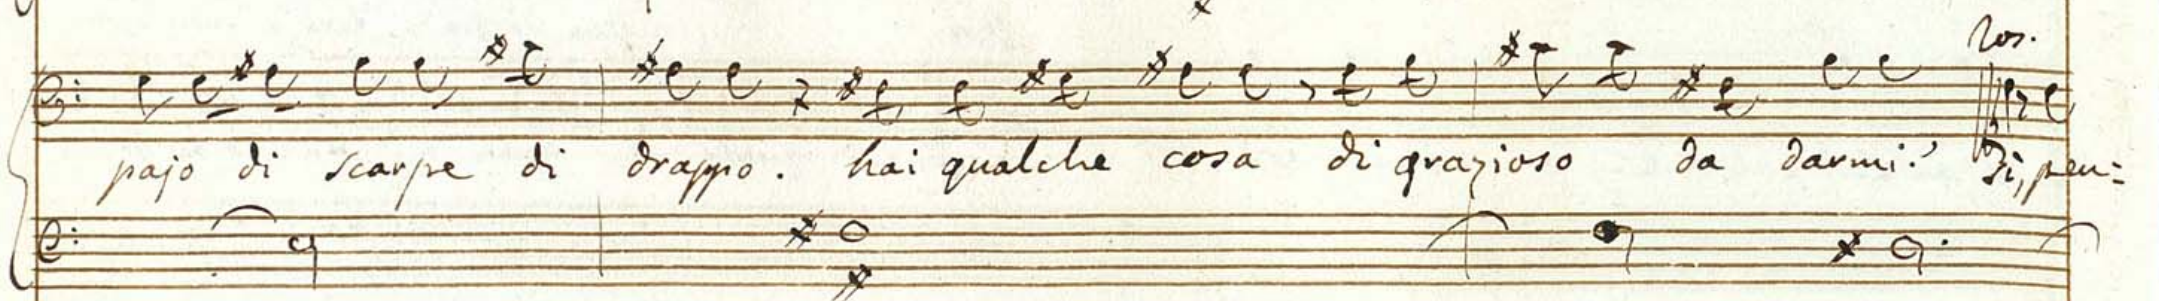 Ros.
pajo di scarpe di drappo. hai qualche cosa di grazioso da darmi? Si, pen=